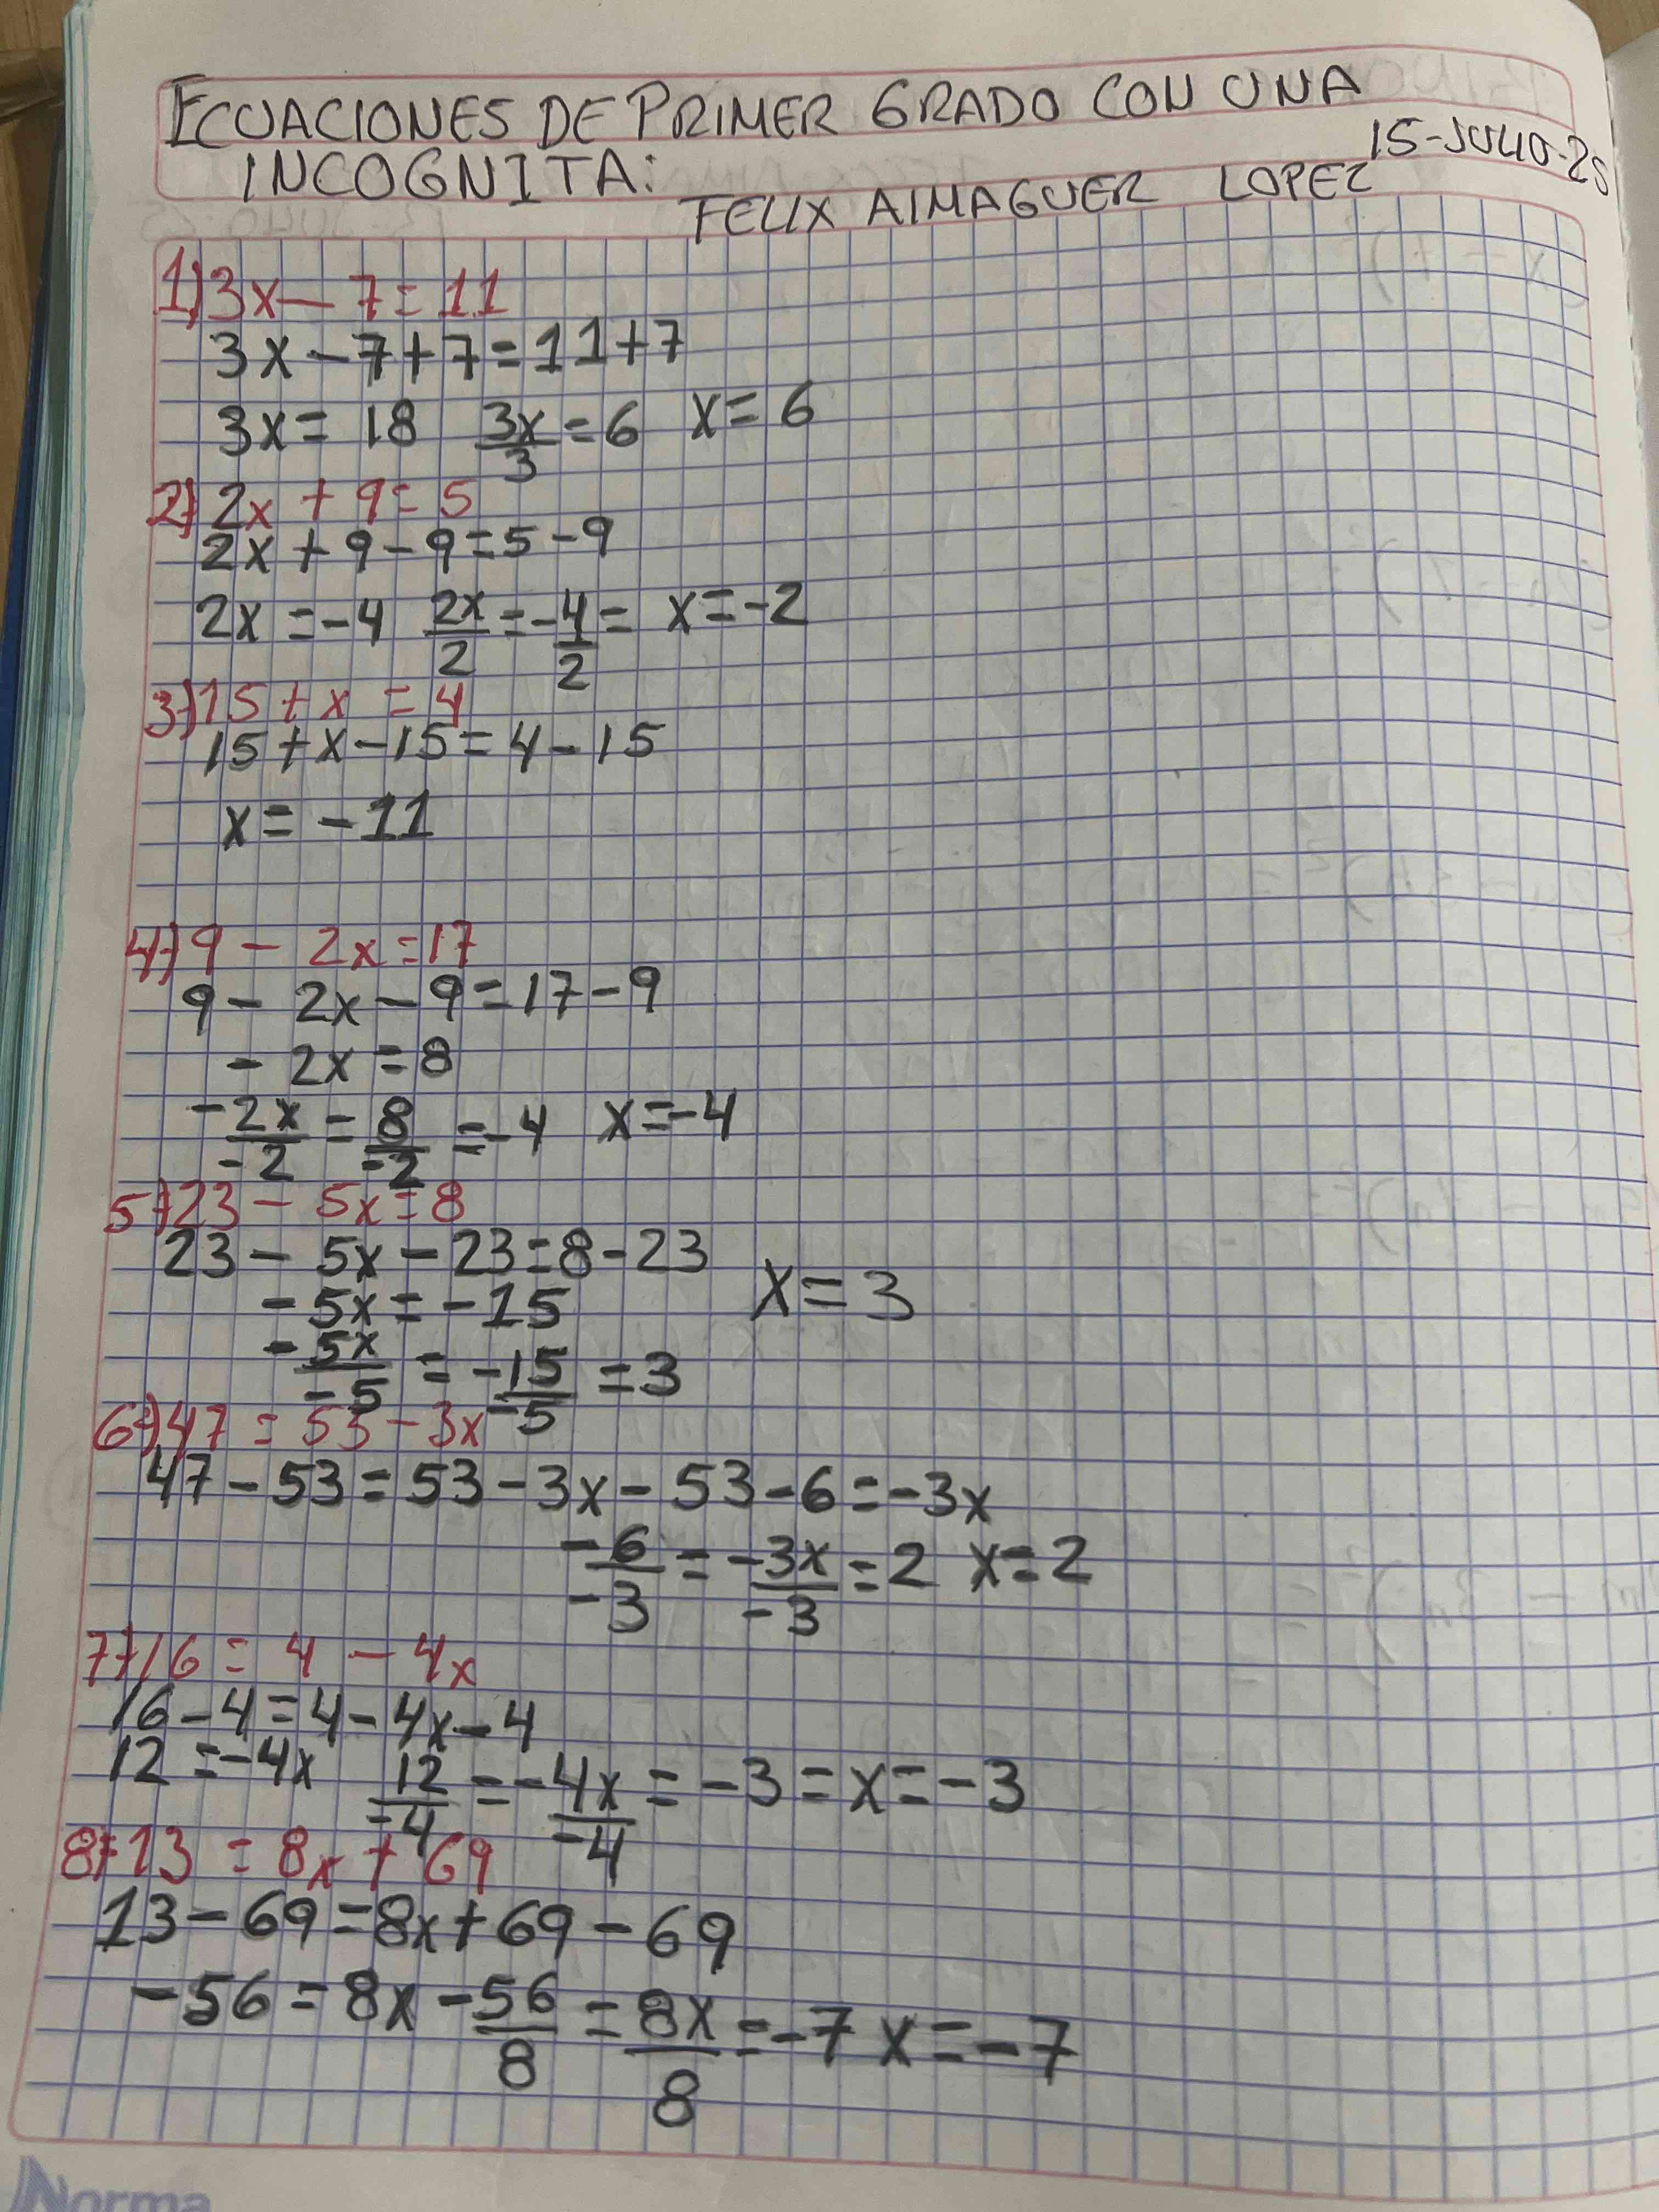 ECUACIONES DE PRIMER GRADO CON UNA
INCOGNITA:
15-JULIO-25
FELIX AlMAGUER LOPEZ
1) 3x - 7 = 11
3x - 7 + 7 = 11 + 7
3x = 18 3x/3 = 6 x = 6
2) 2x + 9 = 5
2x + 9 - 9 = 5 - 9
2x = -4 2x/2 = -4/2 = x = -2
3) 15 + x = 4
15 + x - 15 = 4 - 15
x = -11
4) 9 - 2x = 17
9 - 2x - 9 = 17 - 9
- 2x = 8
-2x/-2 = 8/-2 = -4 x = -4
5) 23 - 5x = 8
23 - 5x - 23 = 8 - 23
- 5x = -15 x = 3
-5x/-5 = -15/-5 = 3
6) 47 = 53 - 3x
47 - 53 = 53 - 3x - 53 - 6 = -3x
-6/-3 = -3x/-3 = 2 x = 2
7) 16 = 4 - 4x
16 - 4 = 4 - 4x - 4
12 = -4x 12/-4 = -4x/-4 = -3 = x = -3
8) 13 = 8x + 69
13 - 69 = 8x + 69 - 69
-56 = 8x -56/8 = 8x/8 = -7 x = -7
Norma